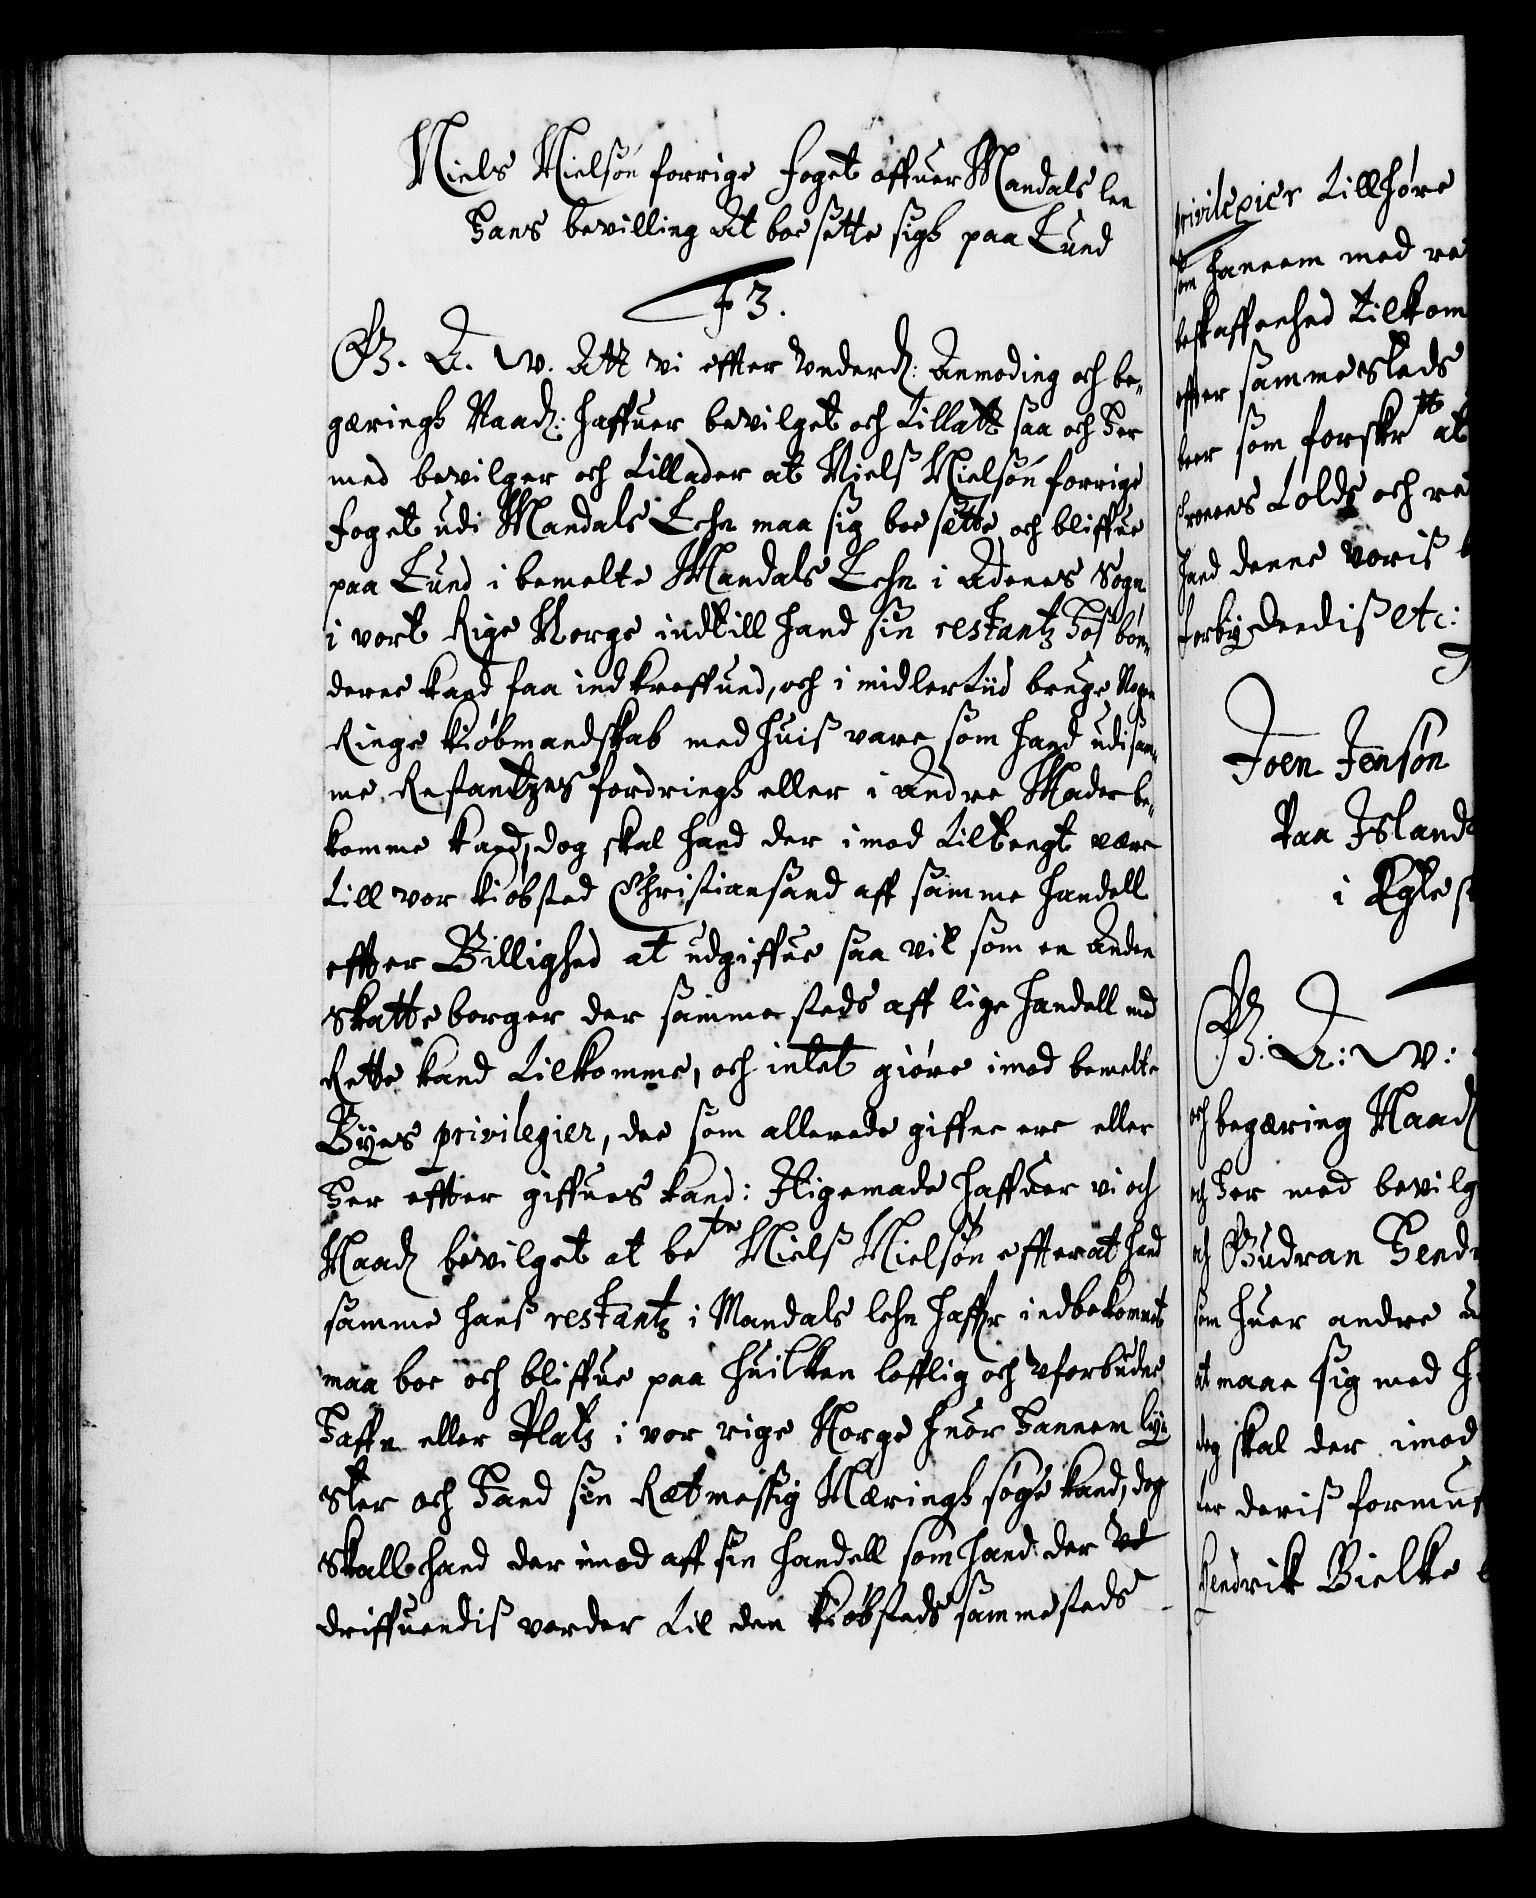 Niels Nielsøn forrige foget offuer Mandals len
Hans bevilling At boe sette sigh paa Lund
F3.
G. A. W. Att vi efter Underd: Anmoding och be-
gæringh Naad: haffuer bevilget och Tillatt saa och Her
med bevilger och Tillader at Nielß Nielsøn forrige
foget udi Mandals Lehn maa sig boe sette och bliffue
paa Lund i bemelte Mandals Lehn i Odenes Sogn
i vort Rige Norge indtill hand sin restantz Hos bøn-
derne kand faa indkreffued, och i midlertiid bruge Nogen
Ringe kiøbmandskab med huiß vare som hand udi sam-
me Restantzes fordringh eller i Andre Made be-
komme kand, dog skal hand der imod Tiltengt være
till vor kiøbsted Christiansand aff samme handell
effter Billighed at udgiffue saa vit som en Anden
skatte borger der sammesteds aff lige handell med
Rette kand Tilkomme, och intet giøre imod bemelte
Byes privilegier, den som allerede giffne ere eller
Her effter giffues kand: Iligemade haffuer vi och
Naad bevilget at bete Nielß Nielsøn efferat hand
samme hanß restantz i Mandals lehn haffr indbekommet
maa boe och bliffue paa huilken lofflig och Uforbuden
Haffn eller Platz i vor rige Norge huor Hannem lyy-
ster och Hand sin Retmessig Næringh søge kand, dog
skalle hand der imod aff sin handell som hand der Ud
driffuendiß vorder Til den kiøbsteds sammesteds
privilegier Tillhøre
som hannem med re
beskaffenhed Tilkom
effter sammesteds
beer som forskrtt at
Cronens Told och re
hand denne voriß
forbydendiß etc:
Joen Jensøn
Paa Island
i Egte s
G: A: W:
och begæring Naad
och Her med bevilg
och Gudran Hend
som huer andre u
at maae sig med H
dog skal der imod
ter deriß formu
Hendrik Bielke